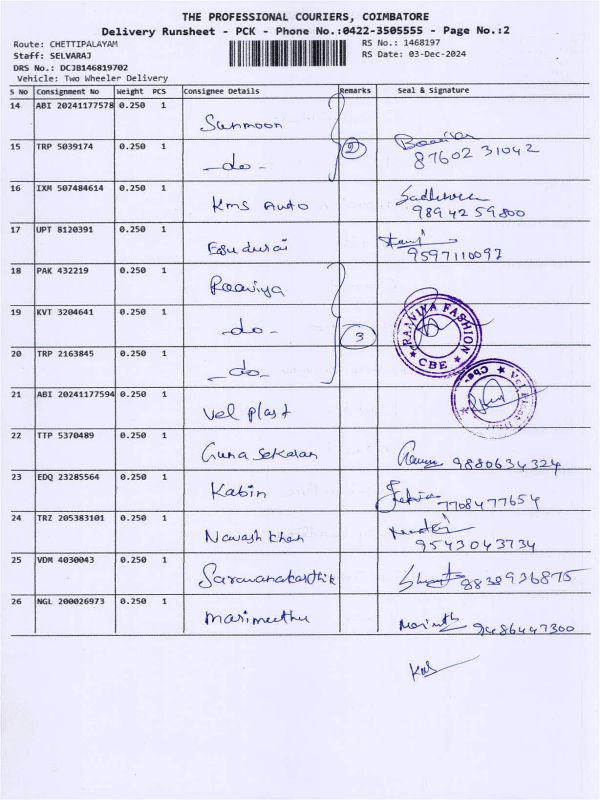 THE PROFESSIONAL COURIERS, COIMBATORE
Delivery Runsheet - PCK - Phone No.:0422-3505555 - Page No.:2
Route: CHETTIPALAYAM RS No.: 1468197
Staff: SELVARAJ RS Date: 03-Dec-2024
DRS No.: DCJB146819702
Vehicle: Two Wheeler Delivery
S No Consignment No Weight PCS Consignee Details Remarks Seal & Signature
14 ABI 20241177578 0.250 1 Sunmoon
15 TRP 5039174 0.250 1 -do- 2 87602 31042
16 IXM 507484614 0.250 1 Kms Auto 9894259800
17 UPT 8120391 0.250 1 Esudurai 9597110097
18 PAK 432219 0.250 1 Raaviya
19 KVT 3204641 0.250 1 -do- 3 RAAVIYA FASHION CBE
20 TRP 2163845 0.250 1 -do-
21 ABI 20241177594 0.250 1 Vel plast
22 TTP 5370489 0.250 1 Guna Sekaran 9880634324
23 EDQ 23285564 0.250 1 Kabin 7708477654
24 TRZ 205383101 0.250 1 Navash khan 9543043734
25 VDM 4030043 0.250 1 Saravanakarthik 8838936875
26 NGL 200026973 0.250 1 Marimuthu 9486447300